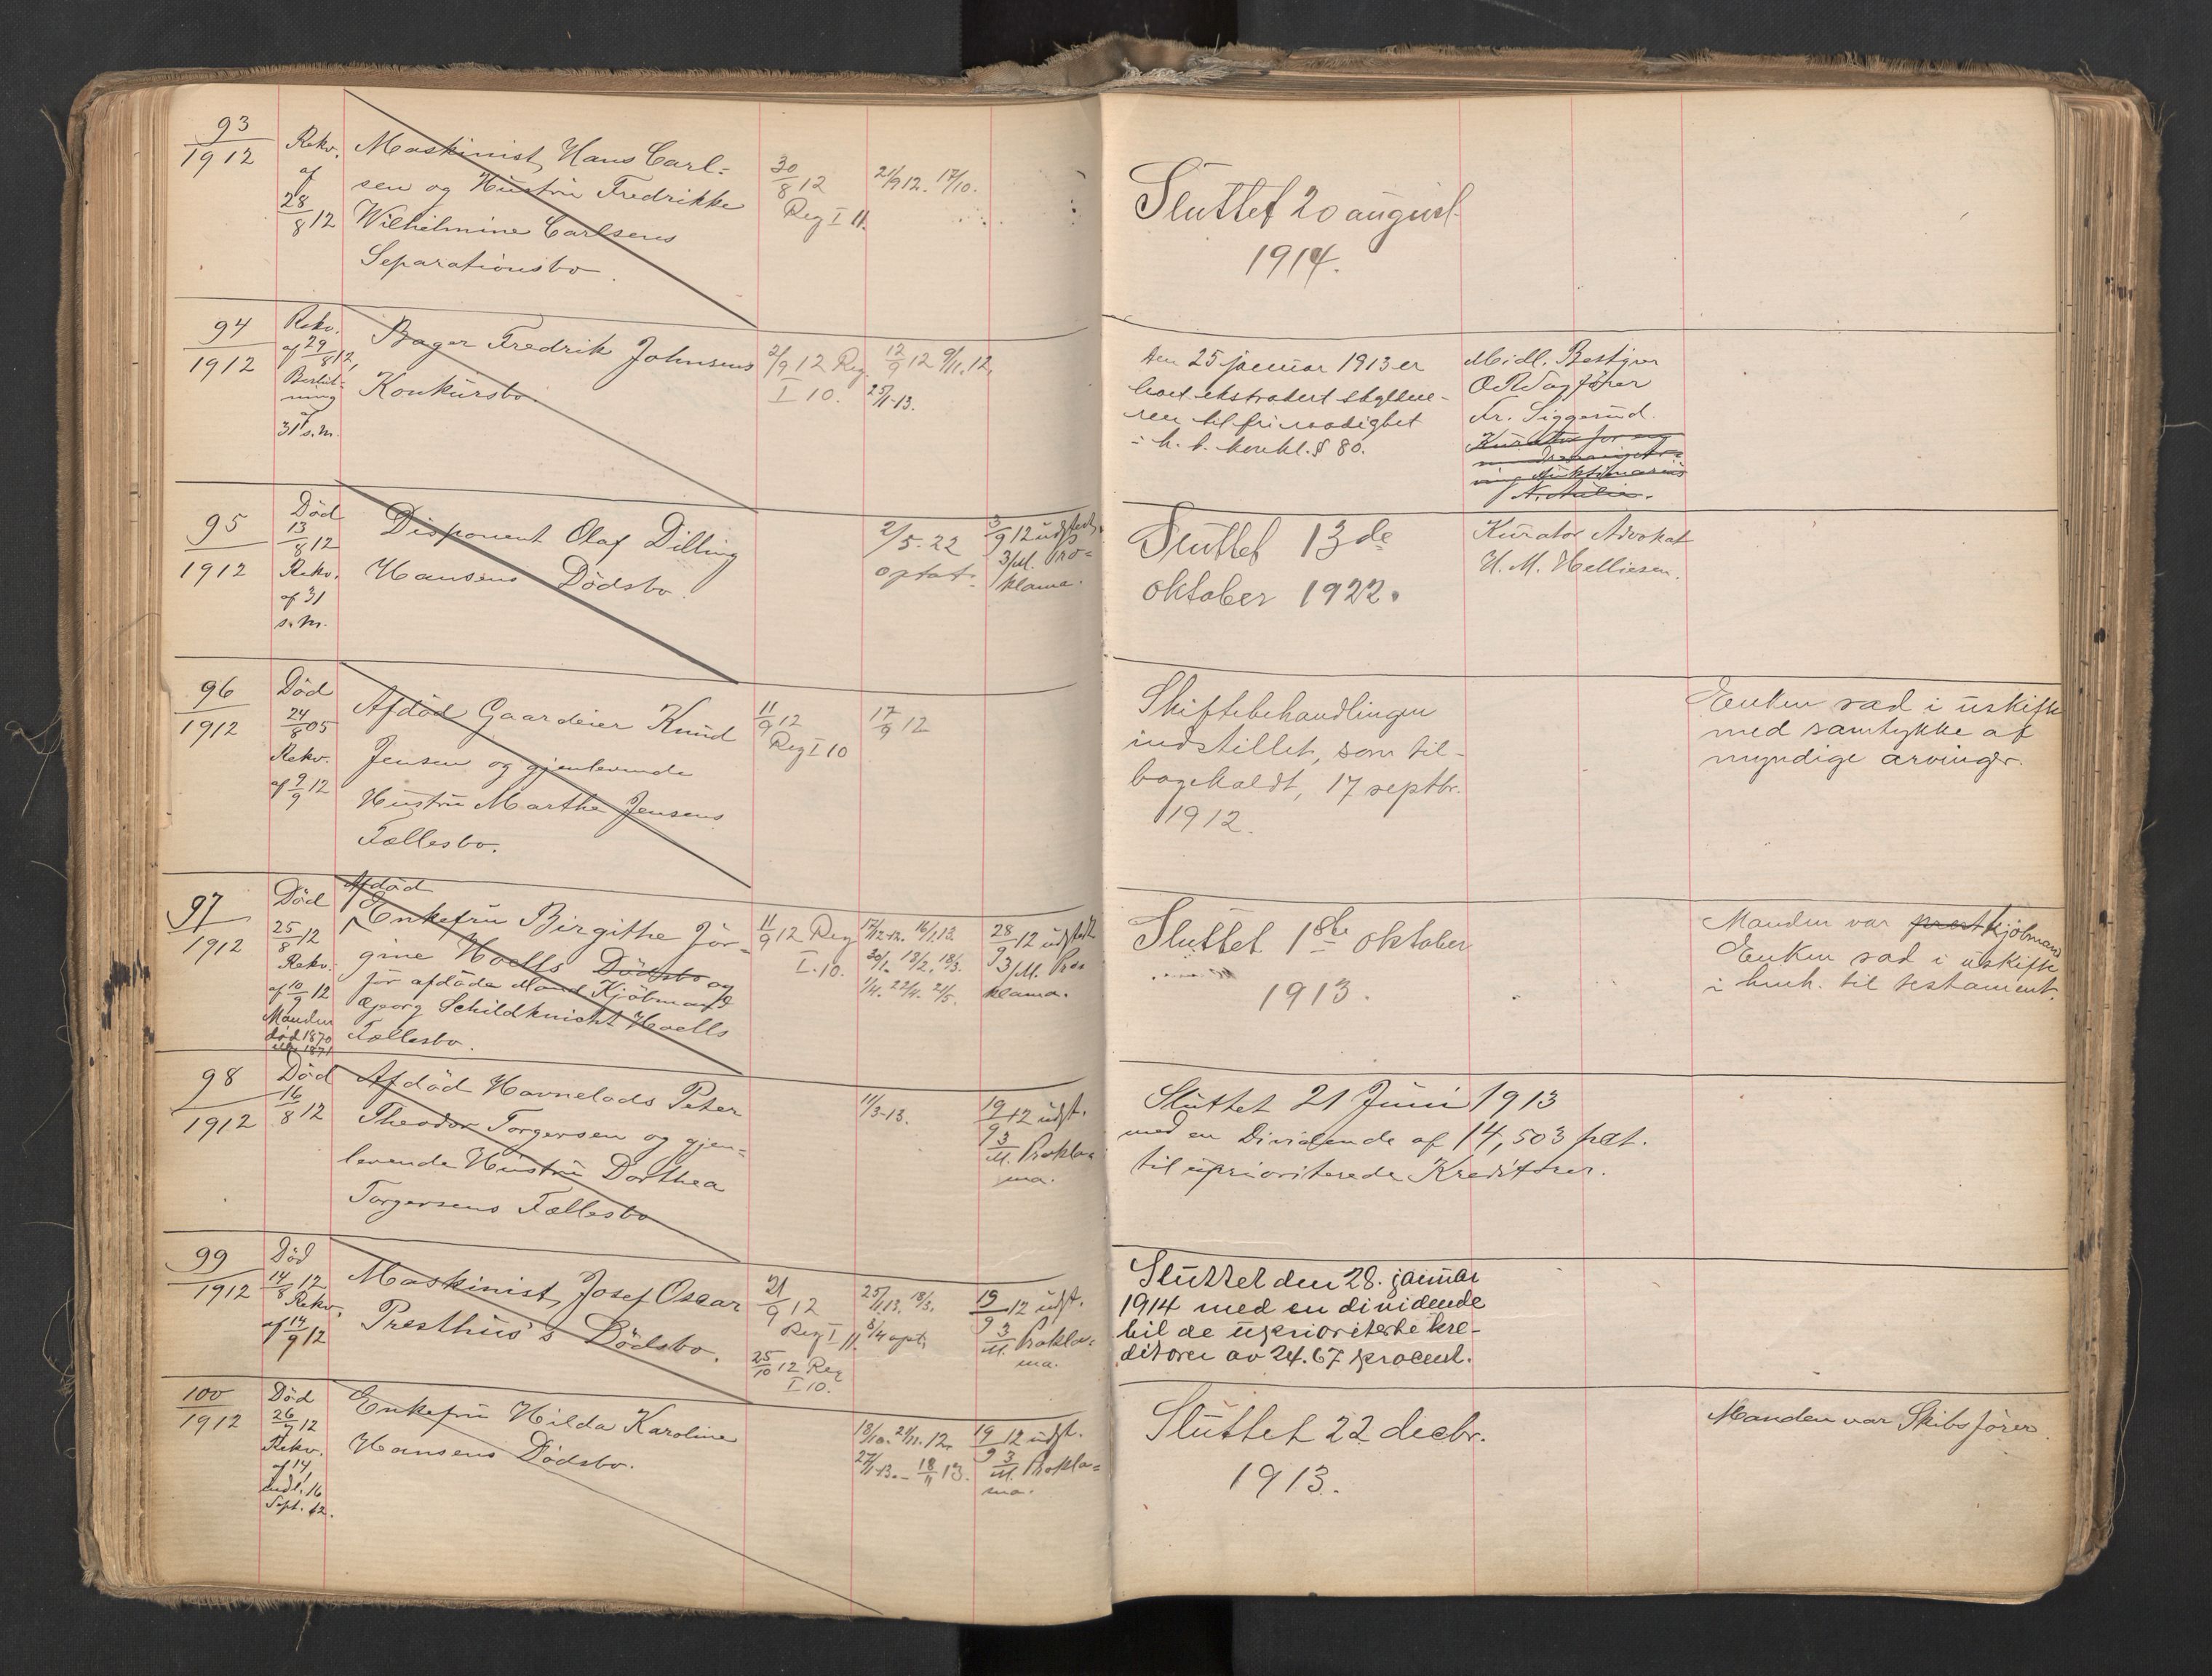 93
1912
Rekv.
af
28/8 12
Maskinist, Hans Carl-
sen og Hustru Fredrikke
Wilhelmine Carlsens
Separationsbo.
30/8 12
Reg I 11.
21/9 12. 17/10.
Sluttet 20 august
1914.
94
1912
Rekv.
af 29/8 12,
Beslut-
ning
af
31 s.m.
Bager Fredrik Johnsens
Konkursbo.
2/9 12 Reg.
I 10.
12/9 12 9/11.12.
25/1-13.
Den 25 januar 1913 er
boet ekstradert skyldne-
ren til fri raadighet
i h. t. konkl. § 80.
Midl. Bestyrer
O.R.Sagfører
Fr. Siggerud.
95
1912
Död
13/8 12
Rekv.
af 31
s.m.
Disponent Olaf Dilling
Hansens Dödsbo.
2/5.22
optat.
3/9 12 udstedt
3/M. Pro-
klama.
Sluttet 13de
oktober 1922.
Kurator Advokat
H. M. Helliesen.
96
1912
Död
24/8 05
Rekv.
af 9/9 12
Afdöd Gaardeier Knud
Jensen og gjenlevende
Hustru Marthe Jensens
Fællesbo.
11/9 12
Reg I 10
17/9 12
Skiftebehandlingen
indstillet, som til-
bagekaldt, 17 septbr.
1912.
Enken sad i uskifte
med samtykke af
myndige arvinger.
97
1912
Död
25/8 12
Rekv.
af 10/9 12
Manden
död 1870
eller 1871
Afdöd
Enkefru Birgithe Jör-
gine Hoells Dödsbo og
för afdöde Mand Kjöbmand
Georg Schildknicht Hoells
Fællesbo.
11/9 12 Reg
I.10.
17/12-12. 16/1.13.
30/1. 18/2. 18/3.
1/4. 22/4. 21/5.
28/9 12 udstedt
3/M. Pro-
klama.
Sluttet 1ste oktober
1913.
Manden var prest kjöbmand
Enken sad i uskifte
i henh. til testament.
98
1912
Död
16/8 12
Afdöd Havnelods Peter
Theodor Torgersen og gjen-
levende Hustru Dorthea
Torgersens Fællesbo
11/3-13.
19/9 12 udst.
3/M. Prokla-
ma.
Sluttet 21 Juni 1913
med en Dividende af 14,503 pct.
til uprioriterede Kreditorer.
99
1912
Död
14/8 12
Rekv.
af 14/9 12
Maskinist, Josef Oscar
Presthus's Dödsbo.
21/9 12
Reg I 11.
25/10 12 Reg
I 10.
25/1.13. 18/3.
8/4 opt.
19/9 12 udst.
3/M. Prokla-
ma.
Sluttet den 28. januar
1914 med en dividende
til de uprioriterte kre-
ditorer av 24.67 procent.
100
1912
Död
26/7 12
Rekv.
af 14,
indl. 16
Sept. 12.
Enkefru Hilda Karoline
Hansens Dödsbo.
18/10. 21/11.12.
27/1-13. - 18/11 13.
19/9 12 udst.
3/M. Prokla-
ma.
Sluttet 22 decbr.
1913.
Manden var Skibsförer.